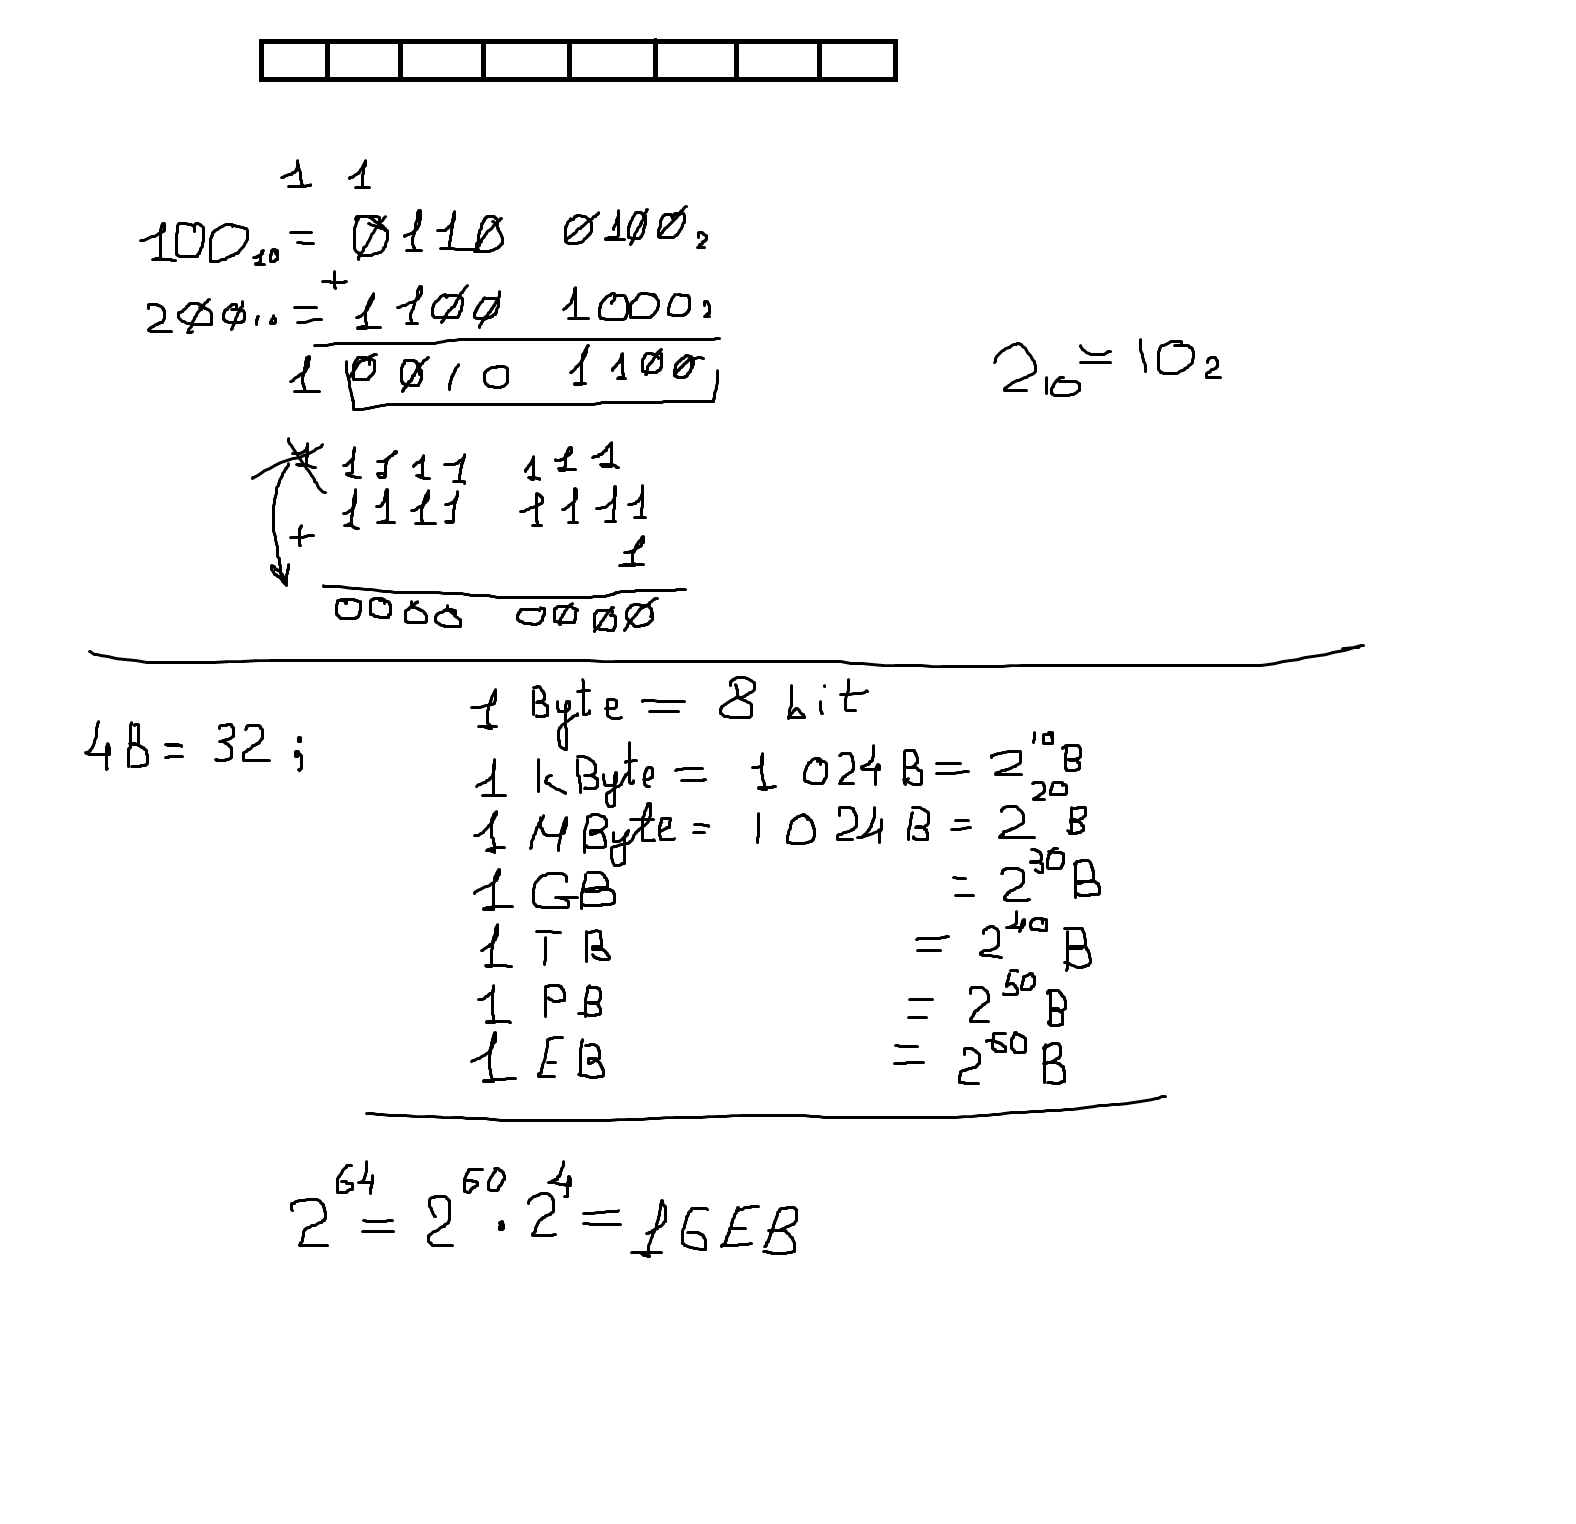 1 1
100₁₀ = 0110 0100₂
+
200₁₀ = 1100 1000₂
1 0010 1100
2₁₀ = 10₂
1 1111 111
1111 1111
+
1
0000 0000
1 Byte = 8 bit
4B = 32 ;
1 kByte = 1 024 B = 2¹⁰ B
1 MByte = 1 024 B = 2²⁰ B
1 GB = 2³⁰ B
1 TB = 2⁴⁰ B
1 PB = 2⁵⁰ B
1 EB = 2⁶⁰ B
2⁶⁴ = 2⁶⁰ · 2⁴ = 16EB